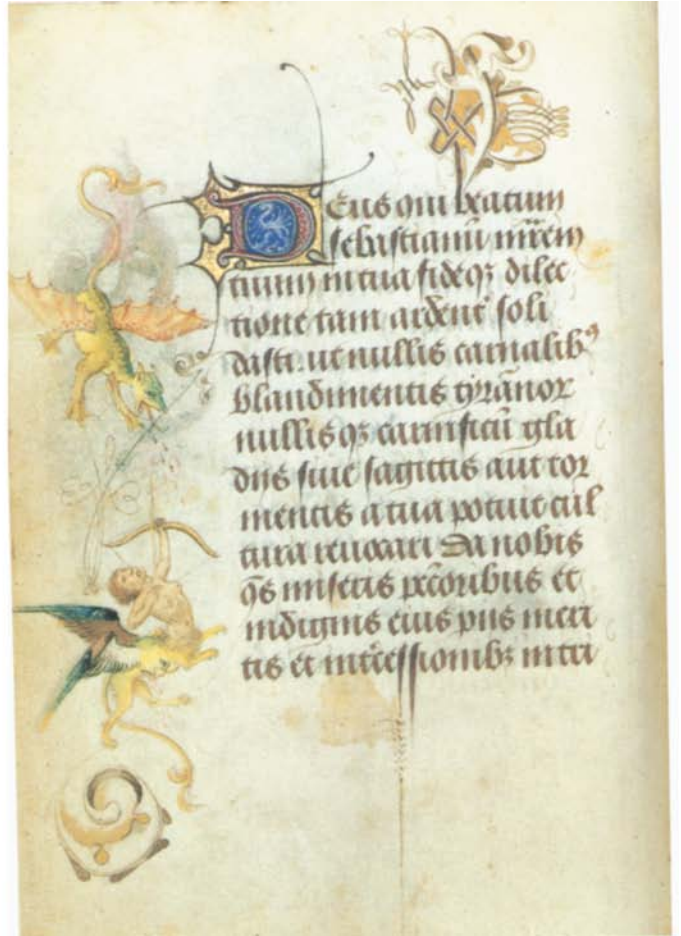 Deus qui beatum
sebastianū mr̄em
tuum in tua fide qꝫ dilec
tione tam ardent᷒ soli
dasti. ut nullis carnalibꝰ
blandimentis tyrānor
nullis qꝫ carnificū gla
diis siue sagittis aut tor
mentis a tua potuit cul
tura reuocari Da nobis
qs̄ miseris pc̄oribus et
indignis eius piis meri
tis et int̄cessionibꝫ in tri